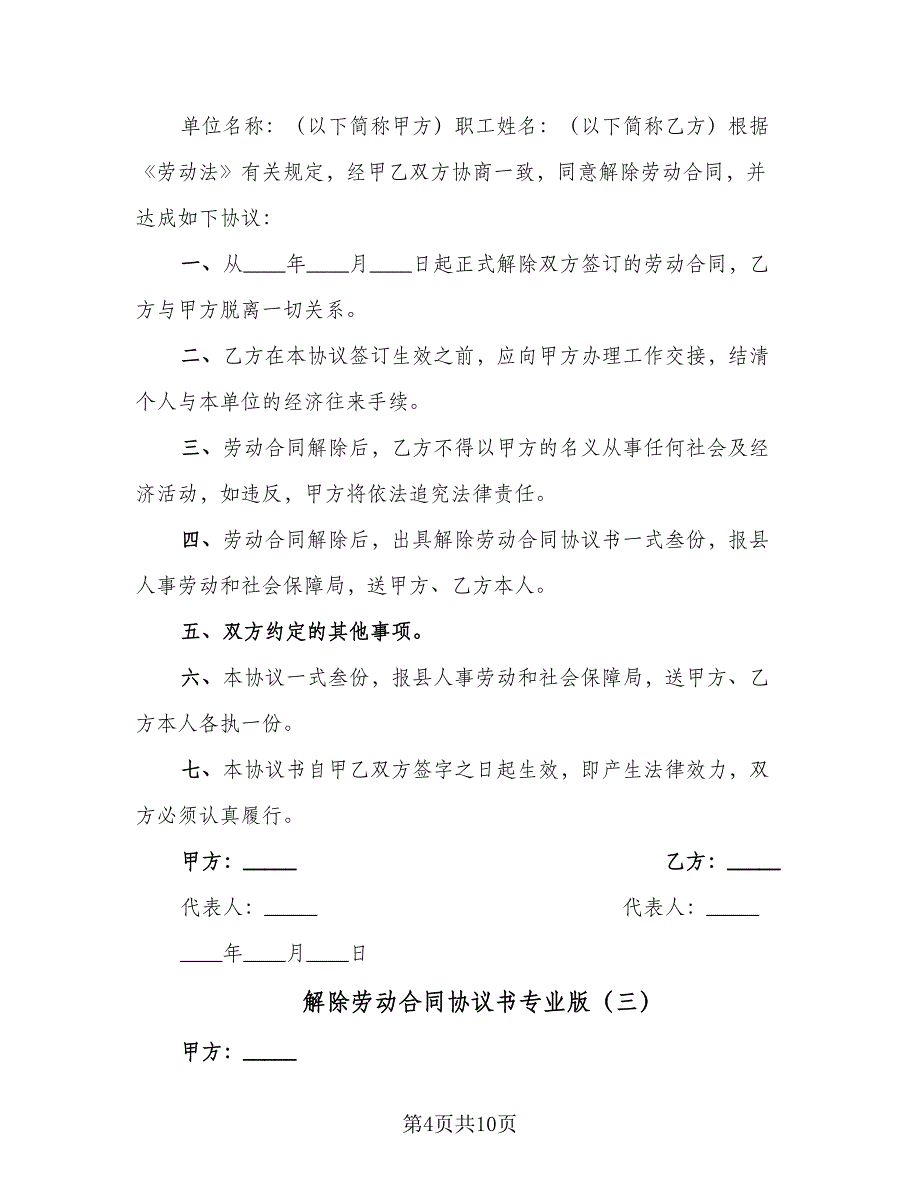 单位名称：（以下简称甲方）职工姓名：（以下简称乙方）根据
《劳动法》有关规定，经甲乙双方协商一致，同意解除劳动合同，并
达成如下协议：
一、从____年____月____日起正式解除双方签订的劳动合同，乙
方与甲方脱离一切关系。
二、乙方在本协议签订生效之前，应向甲方办理工作交接，结清
个人与本单位的经济往来手续。
三、劳动合同解除后，乙方不得以甲方的名义从事任何社会及经
济活动，如违反，甲方将依法追究法律责任。
四、劳动合同解除后，出具解除劳动合同协议书一式叁份，报县
人事劳动和社会保障局，送甲方、乙方本人。
五、双方约定的其他事项。
六、本协议一式叁份，报县人事劳动和社会保障局，送甲方、乙
方本人各执一份。
七、本协议书自甲乙双方签字之日起生效，即产生法律效力，双
方必须认真履行。
甲方：_____ 乙方：_____
代表人：_____ 代表人：_____
____年____月____日
解除劳动合同协议书专业版（三）
甲方：_____
第4页共10页